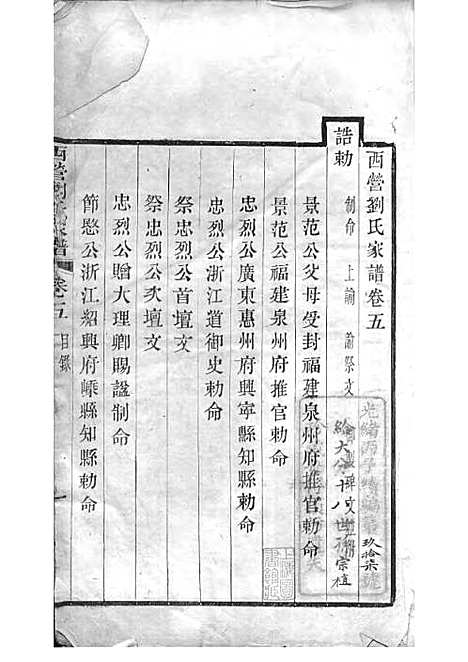 西營劉氏家譜卷五
誥勅 制命 上諭 諭祭文 碑文
景范公父母受封福建泉州府推官勅命
景范公福建泉州府推官勅命
忠烈公廣東惠州府興寧縣知縣勅命
忠烈公浙江道御史勅命
祭忠烈公首壇文
祭忠烈公次壇文
忠烈公贈大理卿賜諡制命
節愍公浙江紹興府嵊縣知縣勅命
西營劉氏家譜 卷五 目錄
光緒丙子續編
玖拾柒號
給大分十八世孫宗植